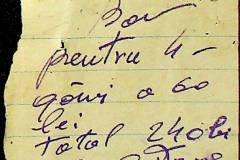 Bon
pentru 4 -
găini a 60
lei
total 240 lei